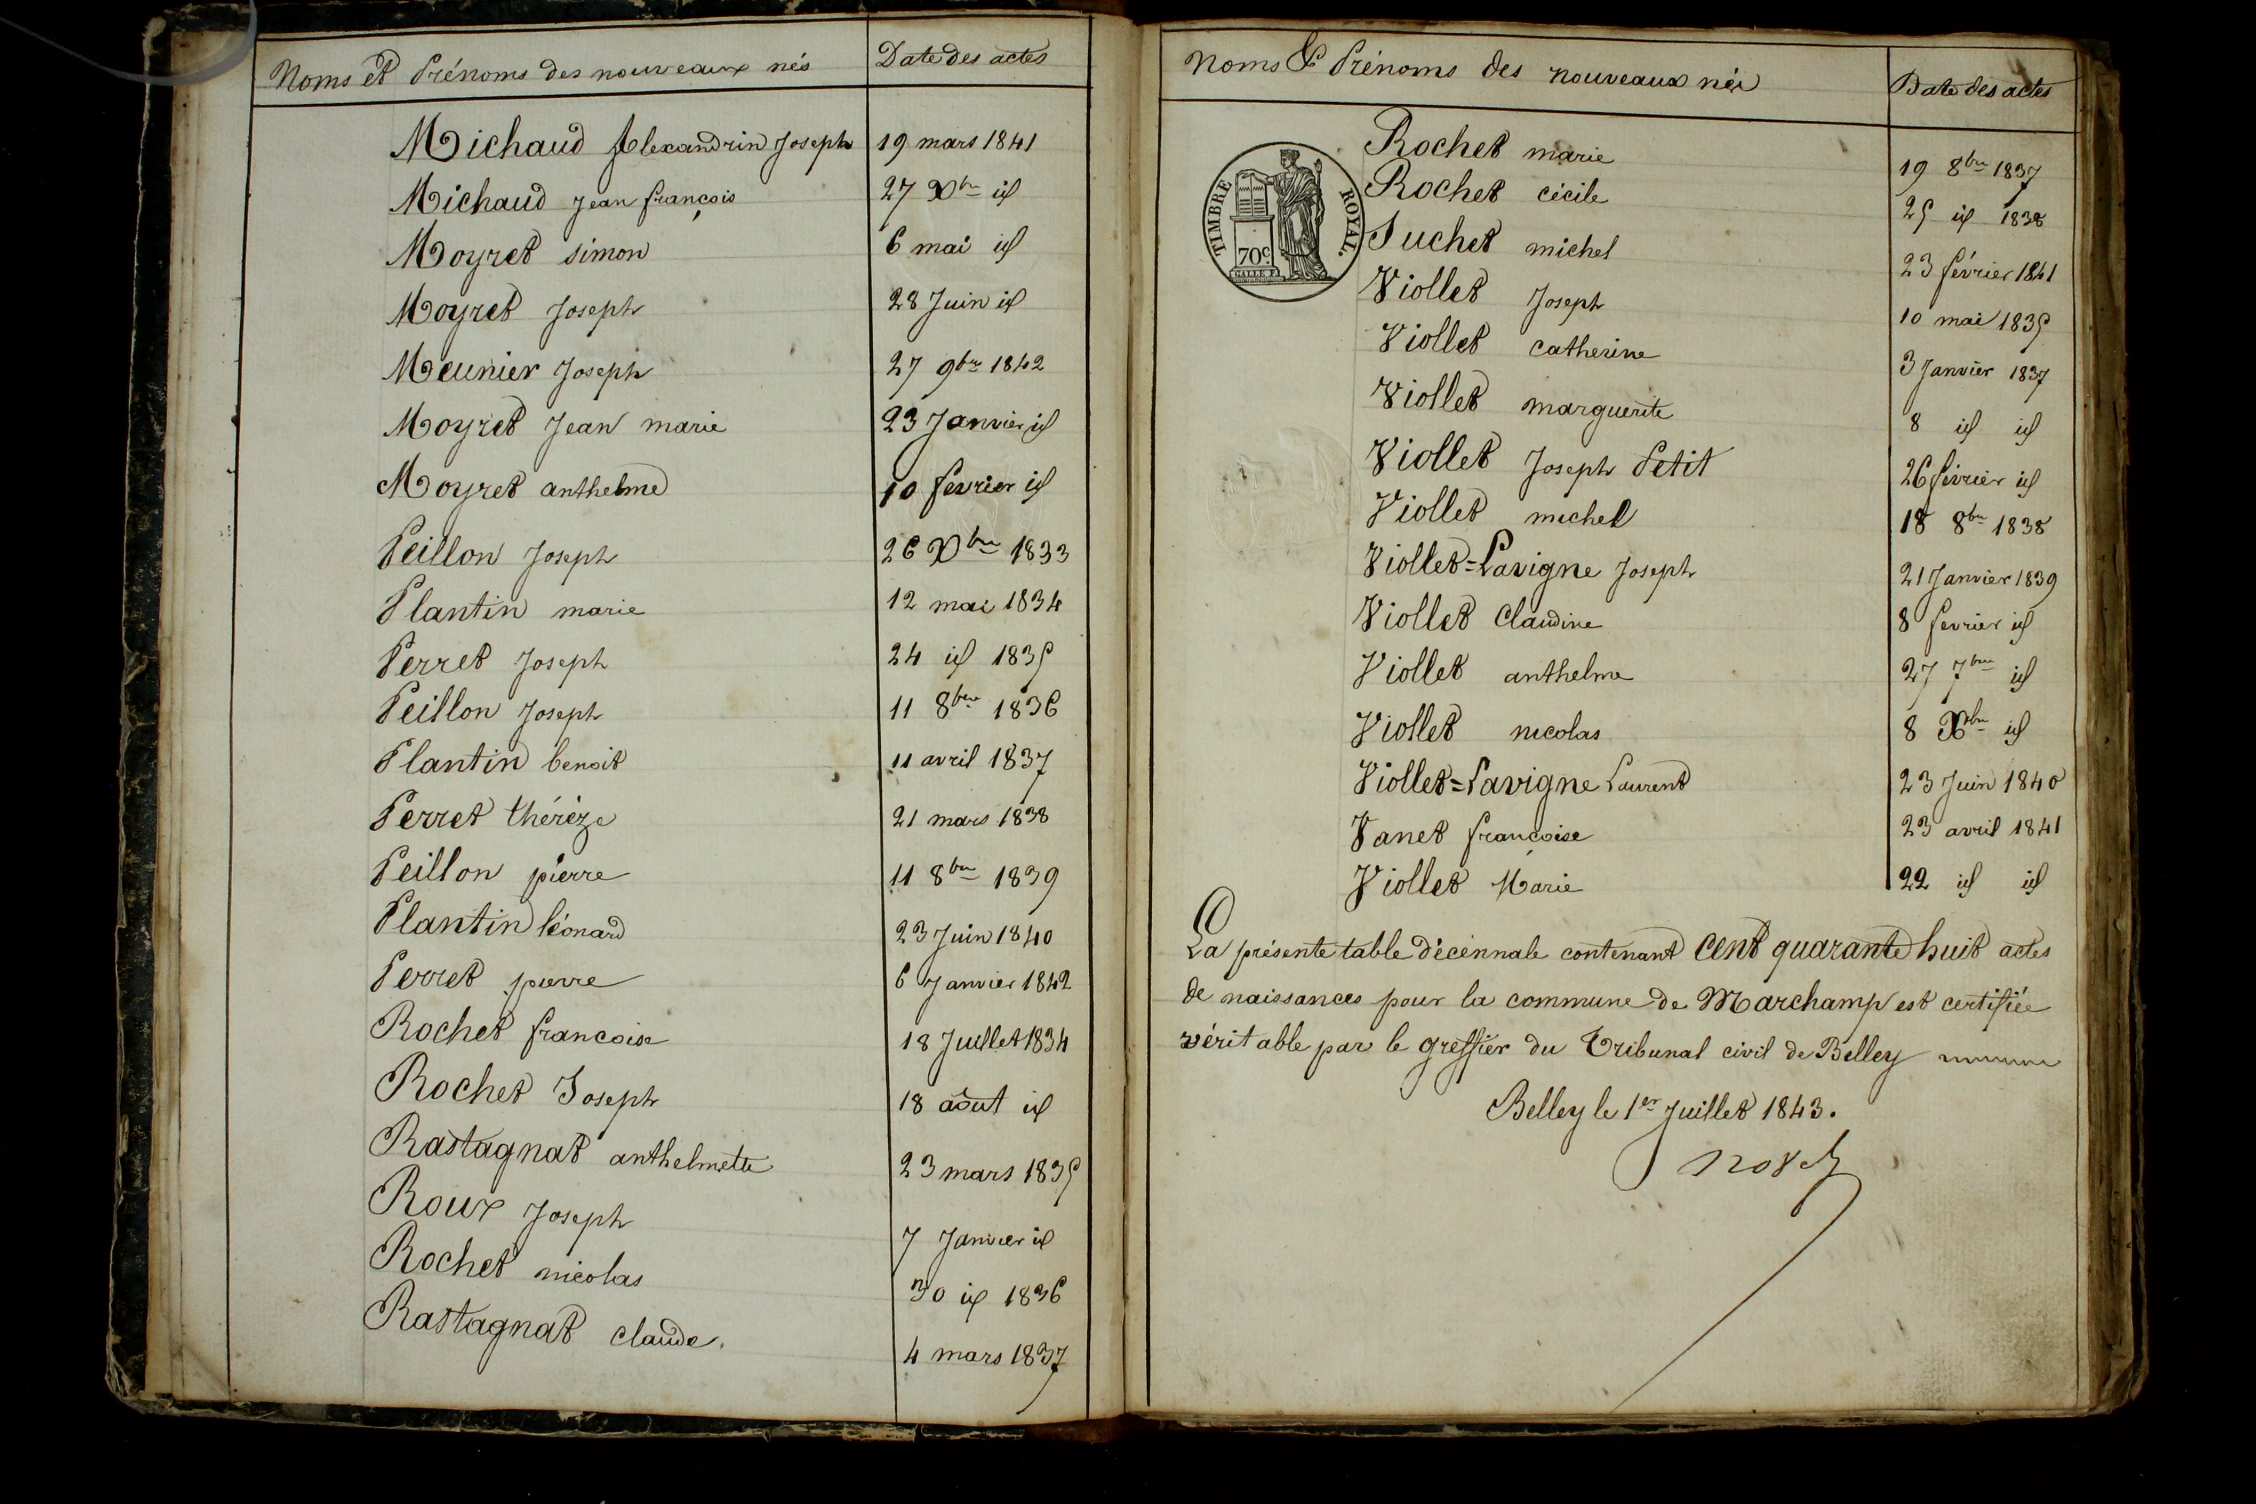 Noms et Prénoms des nouveaux nés Date des actes
Michaud Alexandrin Joseph 19 mars 1841
Michaud Jean françois 27 Xbre id
Moyret simon 6 mai id
Moyret Joseph 28 Juin id
Meunier Joseph 27 9bre 1842
Moyret Jean marie 23 Janvier id
Moyret anthelme 10 fevrier id
Peillon Joseph 26 Xbre 1833
Plantin marie 12 mai 1834
Perret Joseph 24 id 1835
Peillon Joseph 11 8bre 1836
Plantin benoit 11 avril 1837
Perret thérèze 21 mars 1838
Peillon pierre 11 8bre 1839
Plantin léonard 23 Juin 1840
Perret pierre 6 Janvier 1842
Rochet francoise 18 Juillet 1834
Rochet Joseph 18 aout id
Rastagnat anthelmette 23 mars 1835
Roux Joseph 7 Janvier id
Rochet nicolas 30 id 1836
Rastagnat claude. 4 mars 1837
Noms & Prénoms des nouveaux nés Date des actes
TIMBRE ROYAL.
70c
Rochet marie 19 8bre 1837
Rochet cécile 25 id 1838
Suchet michel 23 février 1841
Viollet Joseph 10 mai 1835
Viollet catherine 3 Janvier 1837
Viollet marguerite 8 id id
Viollet Joseph Petit 26 février id
Viollet michel 18 8bre 1838
Viollet=Lavigne Joseph 21 Janvier 1839
Viollet Claudine 8 fevrier id
Viollet anthelme 27 7bre id
Viollet nicolas 8 Xbre id
Viollet=Lavigne Laurent 23 Juin 1840
Vanet françoise 23 avril 1841
Viollet Marie 22 id id
La présente table décennale contenant cent quarante huit actes
de naissances pour la commune de Marchamp est certifiée
véritable par le greffier du Tribunal civil de Belley
Belley le 1er Juillet 1843.